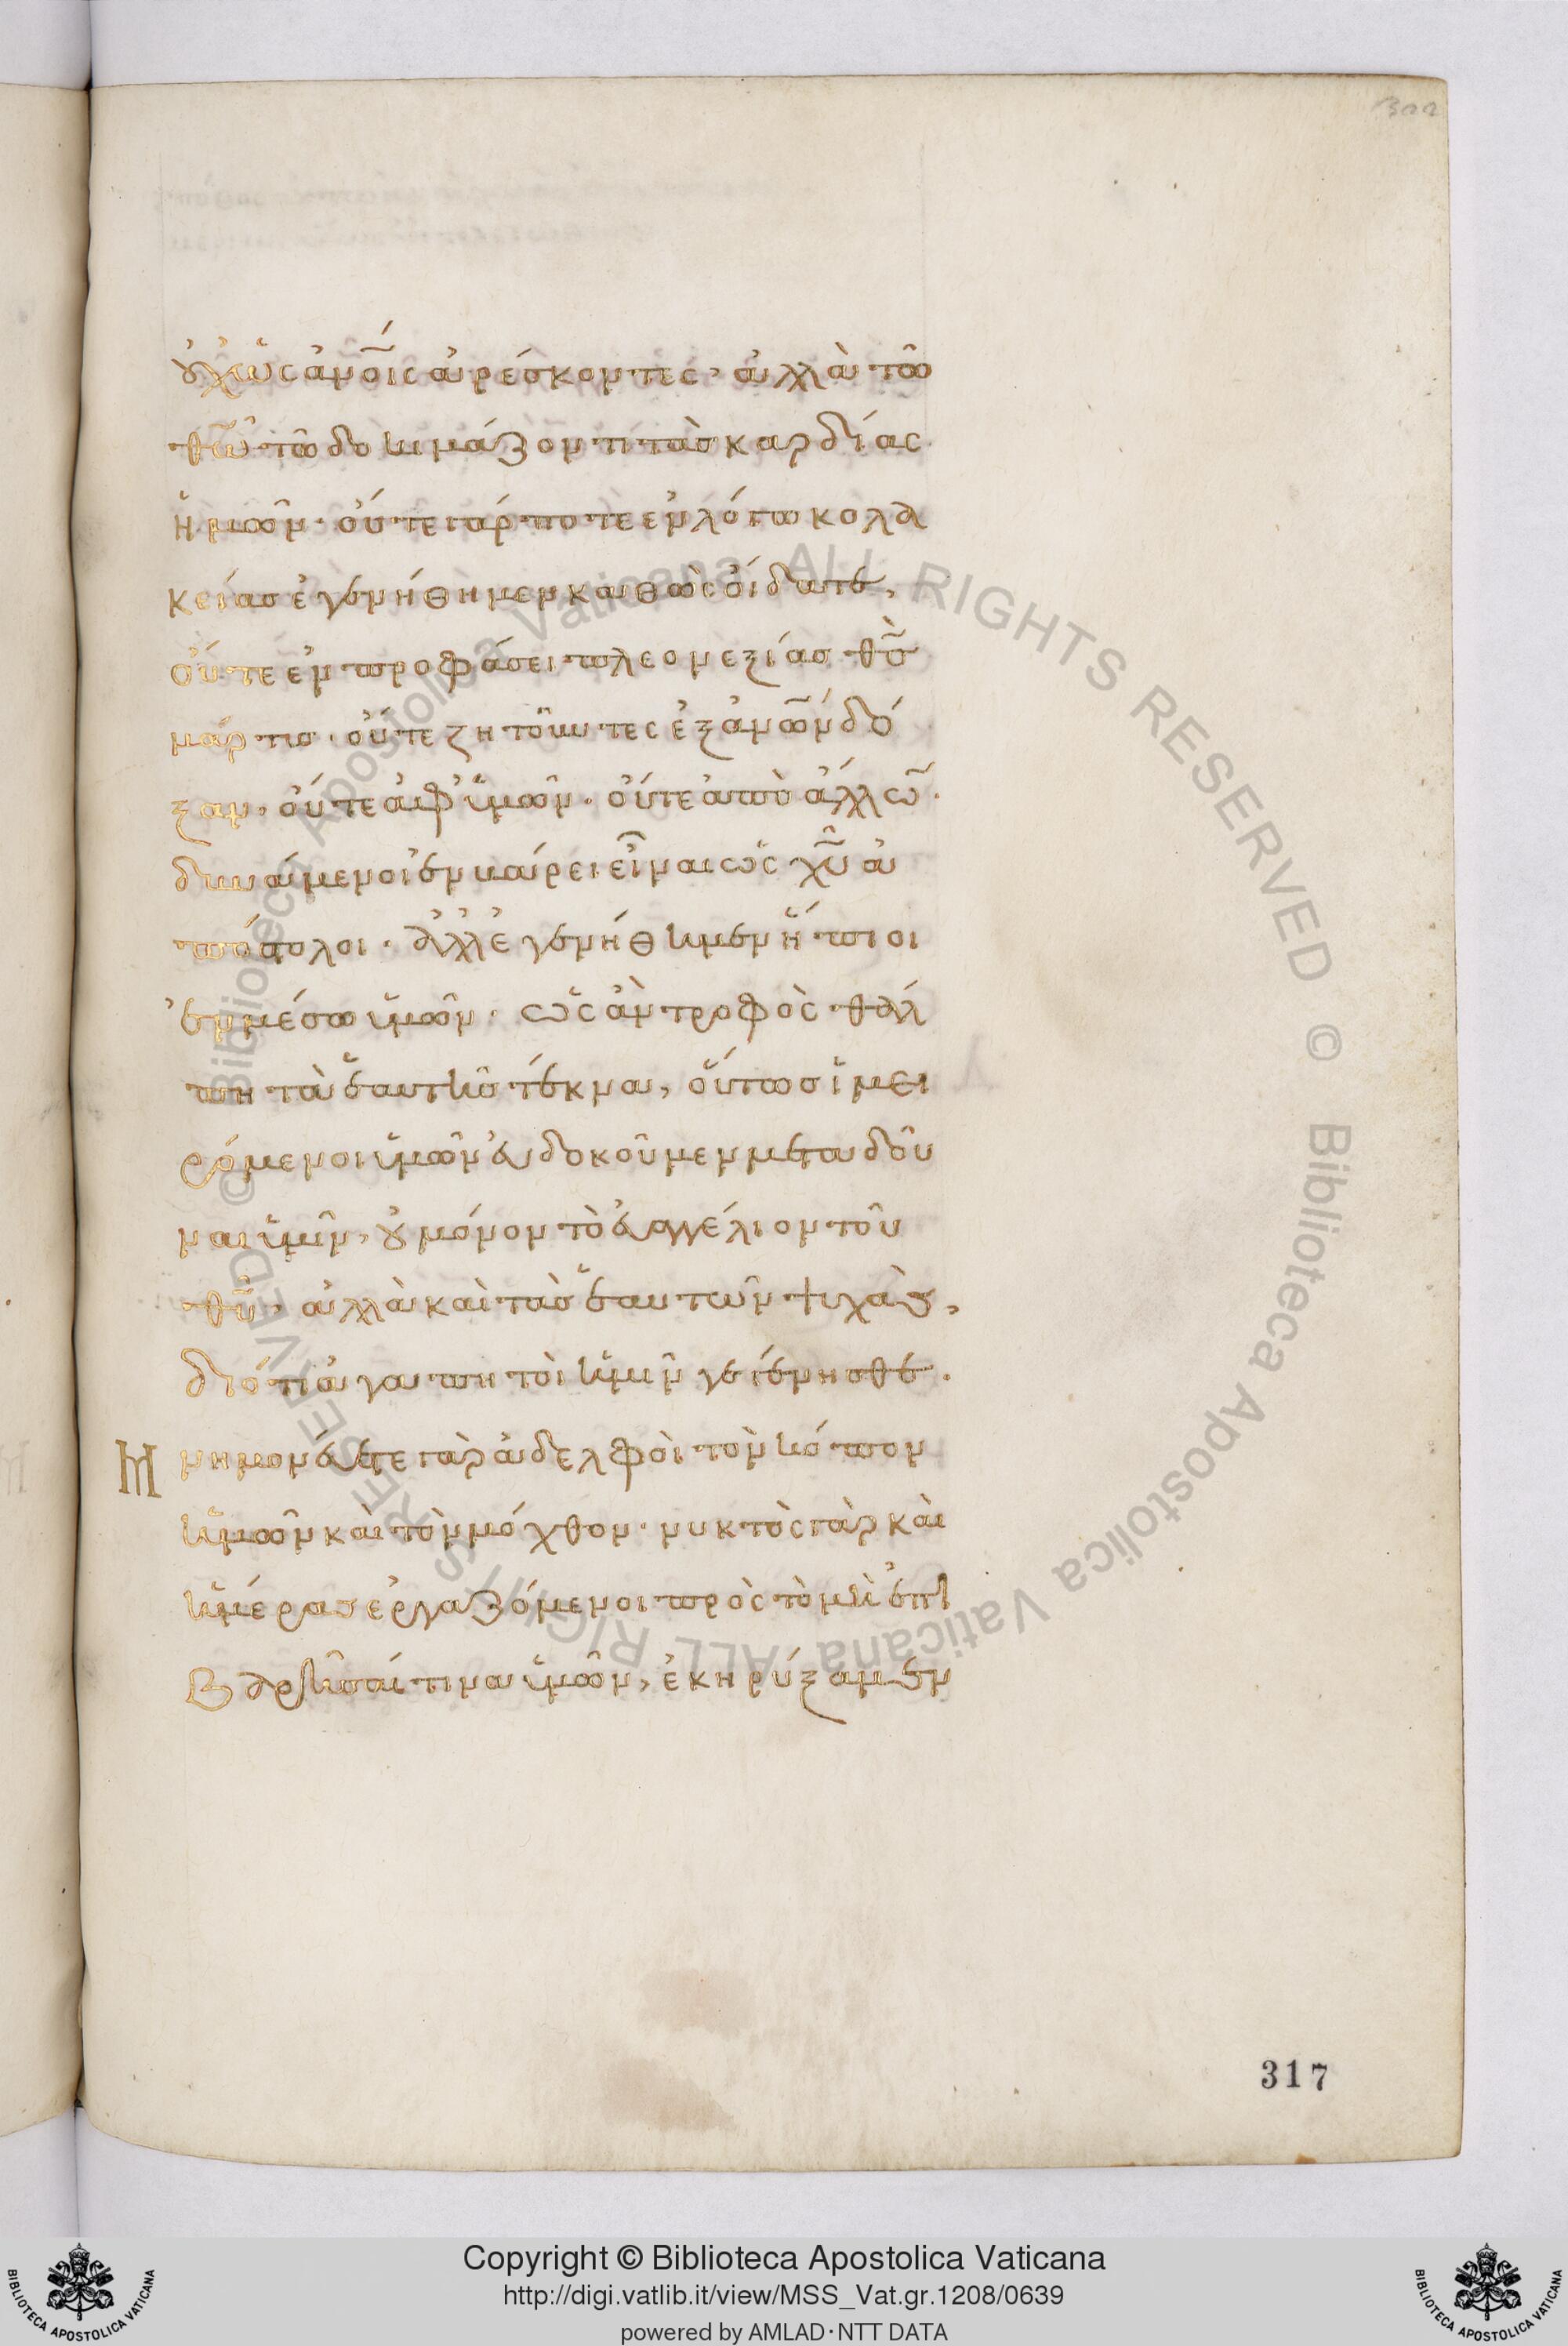 300
οὐχ ὡς ἀν̅ο̅ι̅ς ἀρέσκοντες· ἀλλὰ τῶ
θ̅ω̅ τῶ δοκιμάζοντι τὰσ καρδίας
ἡμῶν· οὔτε γάρ ποτε ἐν λόγω κολα
κείασ ἐγενήθημεν καθὼς οἴδατε,
οὔτε ἐν προφάσει πλεονεξίασ θ̅ς̅
μάρτυσ· οὔτε ζητοῦντες ἐξ ἀν̅ω̅ν δό
ξαν, οὔτε ἀφ' ὑμῶν· οὔτε ἀπὸ ἄλλω̅·
δυνάμενοι ἐν βάρει εἶναι ὡς χ̅υ̅ ἀ
πόστολοι· ἀλλ' ἐγενήθημεν ἤπιοι
ἐν μέσω ὑμῶν· ὡς ἂν τροφὸς θάλ
πη τὰ ἑαυτῆσ τέκνα, οὕτωσ ἱμει
ρόμενοι ὑμῶν εὐδοκοῦμεν μεταδοῦ
ναι ὑμῖν, οὐ μόνον τὸ εὐαγγέλιον τοῦ
θ̅υ̅· ἀλλὰ καὶ τὰσ ἑαυτῶν ψυχὰσ,
διότι ἀγαπητοὶ ἡμῖν γεγένησθε.
Μ μνημονεύετε γὰρ ἀδελφοὶ τὸν κόπον
ἡμῶν καὶ τὸν μόχθον· νυκτὸς γὰρ καὶ
ἡμέρασ ἐργαζόμενοι πρὸς τὸ μὴ ἐπι
βαρῆσαί τινα ὑμῶν, ἐκηρύξαμεν
317
© Biblioteca Apostolica Vaticana ALL RIGHTS RESERVED © Biblioteca Apostolica Vaticana ALL RIGHTS RESERVED
Copyright © Biblioteca Apostolica Vaticana
http://digi.vatlib.it/view/MSS_Vat.gr.1208/0639
powered by AMLAD·NTT DATA
BIBLIOTECA APOSTOLICA VATICANA
BIBLIOTECA APOSTOLICA VATICANA